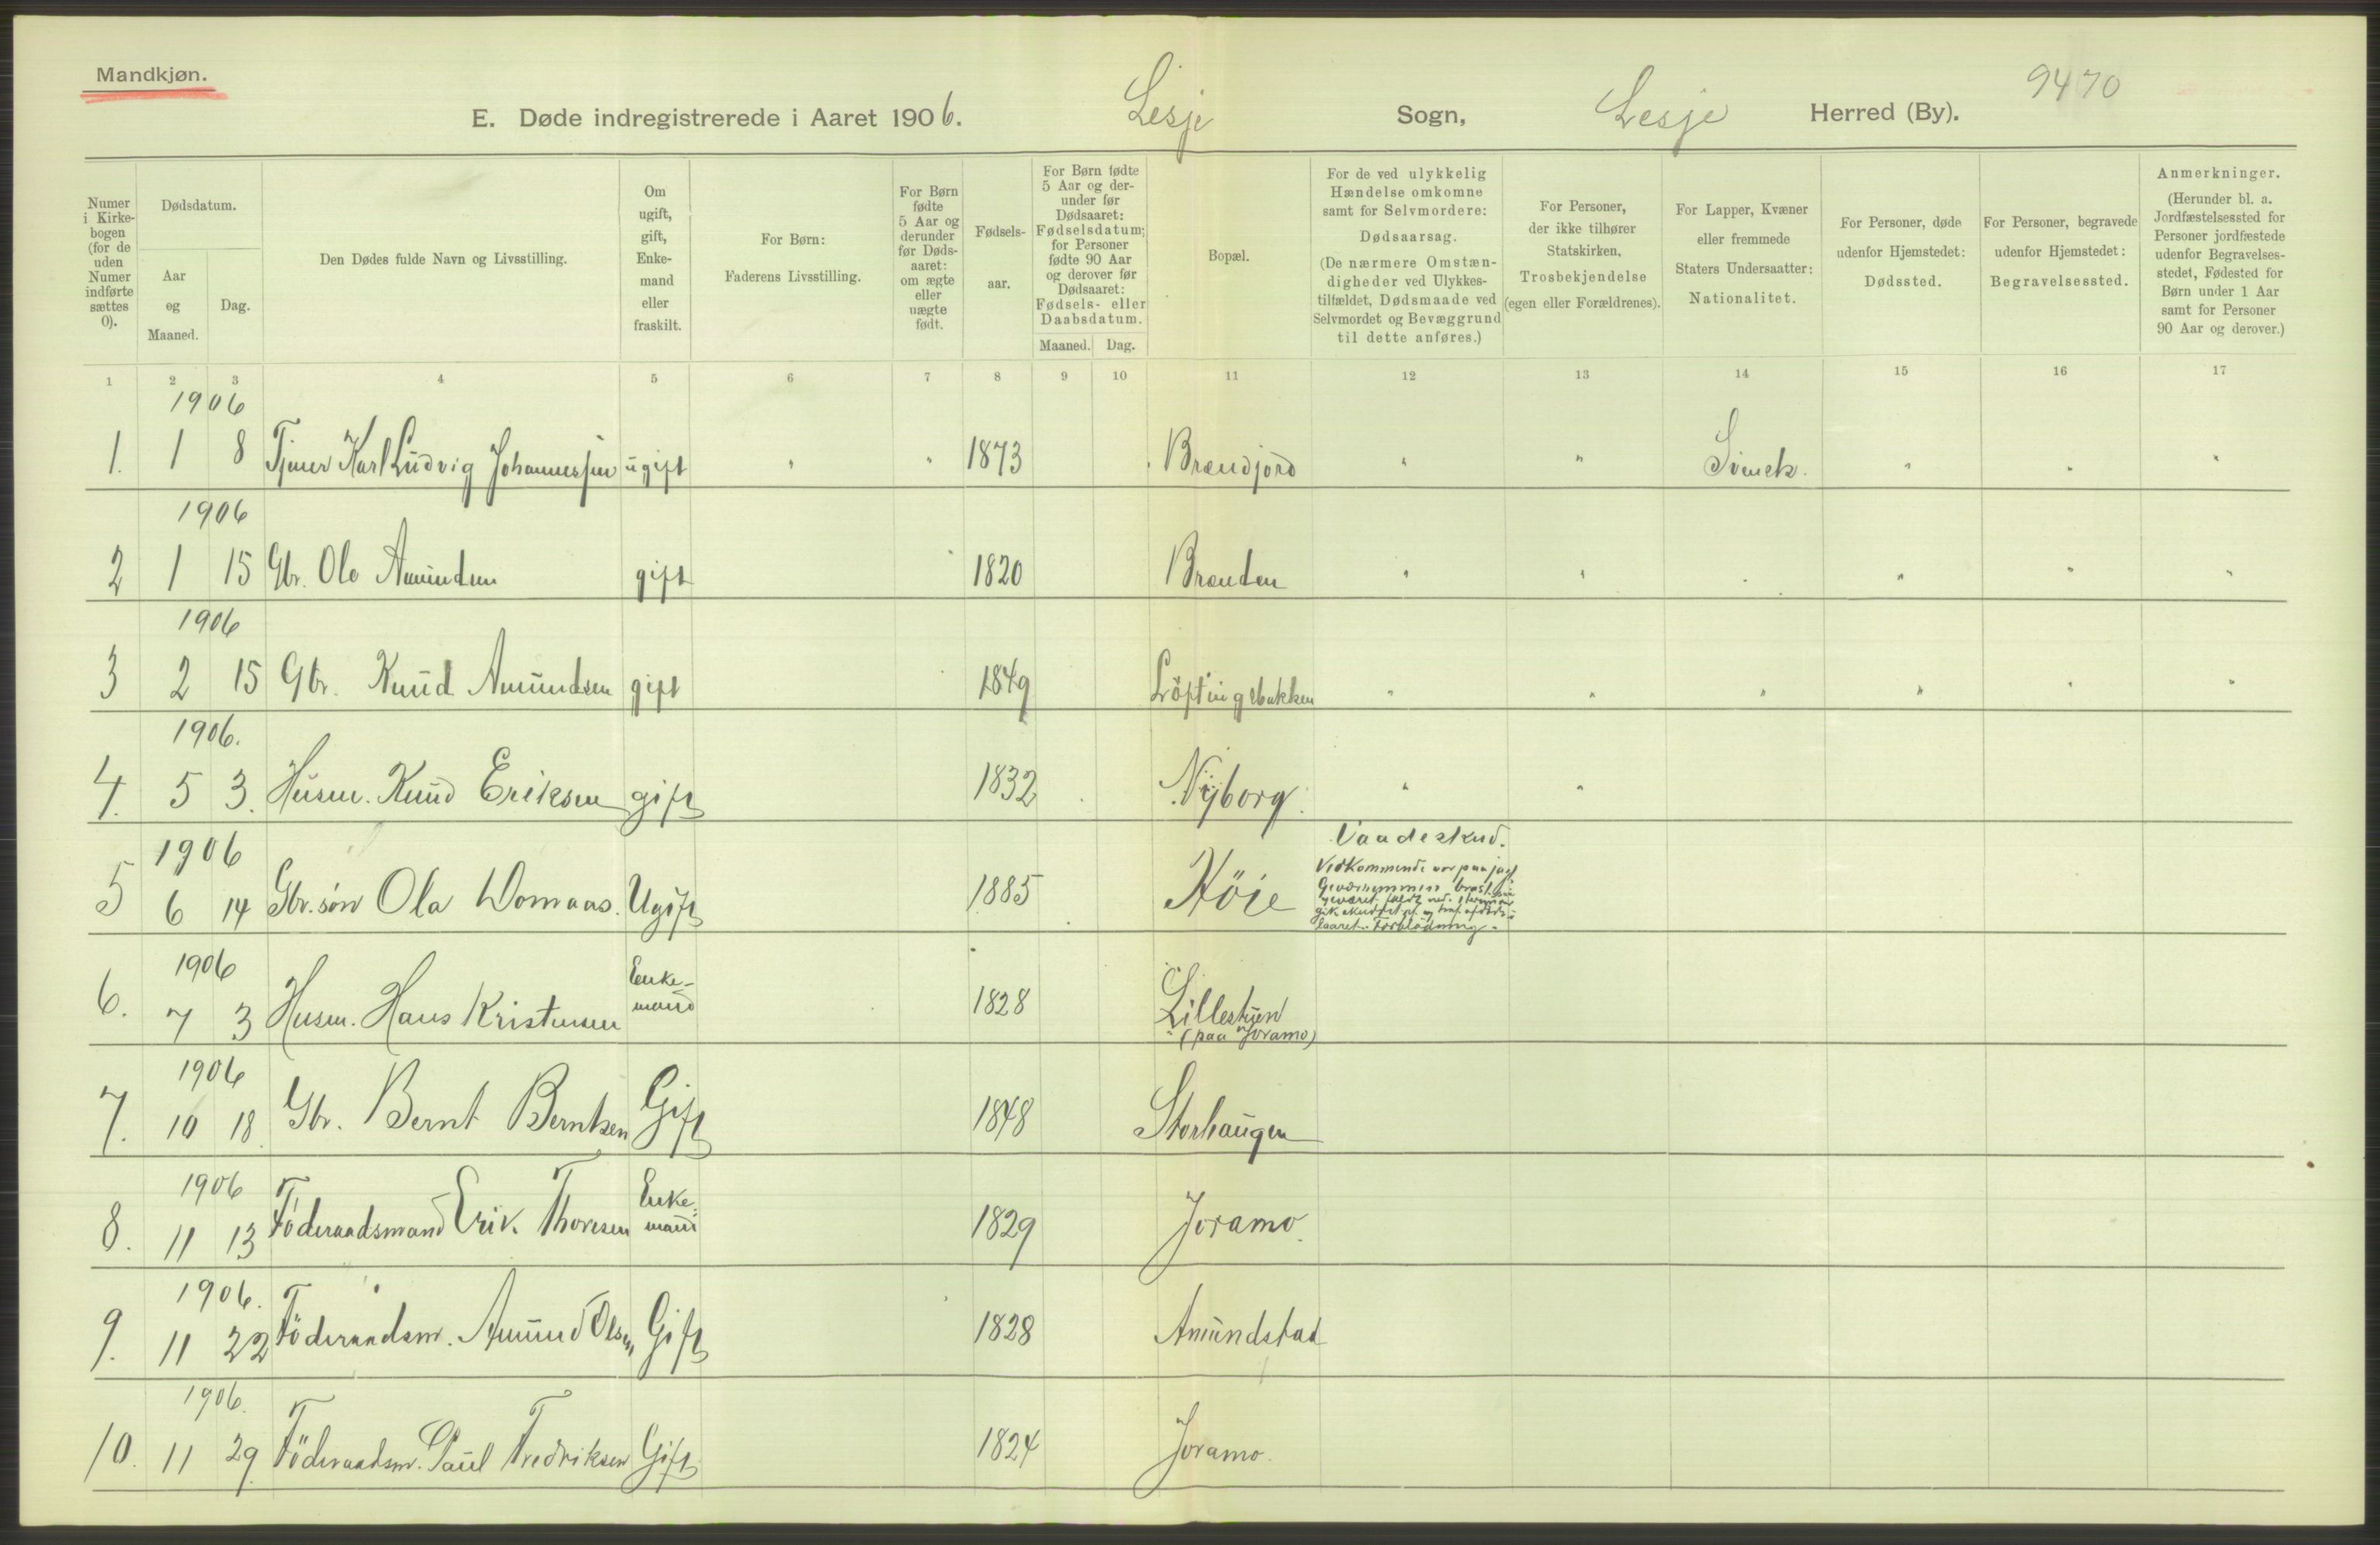 Mandkjøn.
9470
E. Døde indregistrerede i Aaret 1906. Lesje Sogn, Lesje Herred (By).
Numer i Kirkebogen (for de uden Numer indførte sættes 0).
Dødsdatum.
Aar og Maaned.
Dag.
Den Dødes fulde Navn og Livsstilling.
Om ugift, gift, Enkemand eller fraskilt.
For Børn: Faderens Livsstilling.
For Børn fødte 5 Aar og derunder før Dødsaaret: om ægte eller uægte født.
Fødselsaar.
For Børn fødte 5 Aar og derunder før Dødsaaret: Fødselsdatum; for Personer fødte 90 Aar og derover før Dødsaaret: Fødsels- eller Daabsdatum.
Maaned. Dag.
Bopæl.
For de ved ulykkelig Hændelse omkomne samt for Selvmordere: Dødsaarsag. (De nærmere Omstændigheder ved Ulykkestilfældet, Dødsmaade ved Selvmordet og Bevæggrund til dette anføres.)
For Personer, der ikke tilhører Statskirken, Trosbekjendelse (egen eller Forældrenes).
For Lapper, Kvæner eller fremmede Staters Undersaatter: Nationalitet.
For Personer, døde udenfor Hjemstedet: Dødssted.
For Personer, begravede udenfor Hjemstedet: Begravelsessted.
Anmerkninger. (Herunder bl. a. Jordfæstelsessted for Personer jordfæstede udenfor Begravelsesstedet, Fødested for Børn under 1 Aar samt for Personer 90 Aar og derover.)
1 2 3 4 5 6 7 8 9 10 11 12 13 14 15 16 17
1906
1. 1 8 Tjener Karl Ludvig Johannessen ugift " " 1873 Brændjord " " Svensk. " " "
1906
2 1 15 Gbr. Ole Amundsen gift " 1820 Brænden " " " " " "
1906
3 2 15 Gbr. Knud Amundsen gift 1849 Löftingsbakken " " " " " "
1906.
4. 5 3. Husm. Knud Eriksen gift 1832 Nyborg. " "
1906
5 6 14 Gbr.søn Ola Domaas. Ugift 1885 Höie Vaadeskud.
Vedkommende var paa jagt
Forblödning.
1906
6. 7 3 Husm. Hans Kristensen Enkemand 1828 Lillestuen
(paa Joramo)
1906
7. 10 18. Gbr. Bernt Berntsen Gift 1848 Storhaugen
1906
8. 11 13 Föderaadsmand Erik Thoresen Enkemand 1829 Joramo.
1906.
9. 11 22 Föderaadsm. Amund Olsen Gift 1828 Amundstad
1906.
10. 11 29 Föderaadsm. Paul Fredriksen Gift 1824 Joramo.